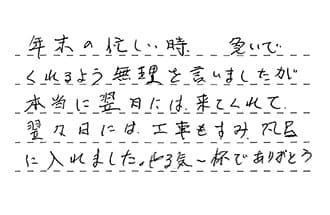 年末の忙しい時、急いで
くれるよう無理を言いましたが
本当に翌日には、来てくれて、
翌々日には、工事もすみ、風呂
に入れました。やる気一杯でありがとう